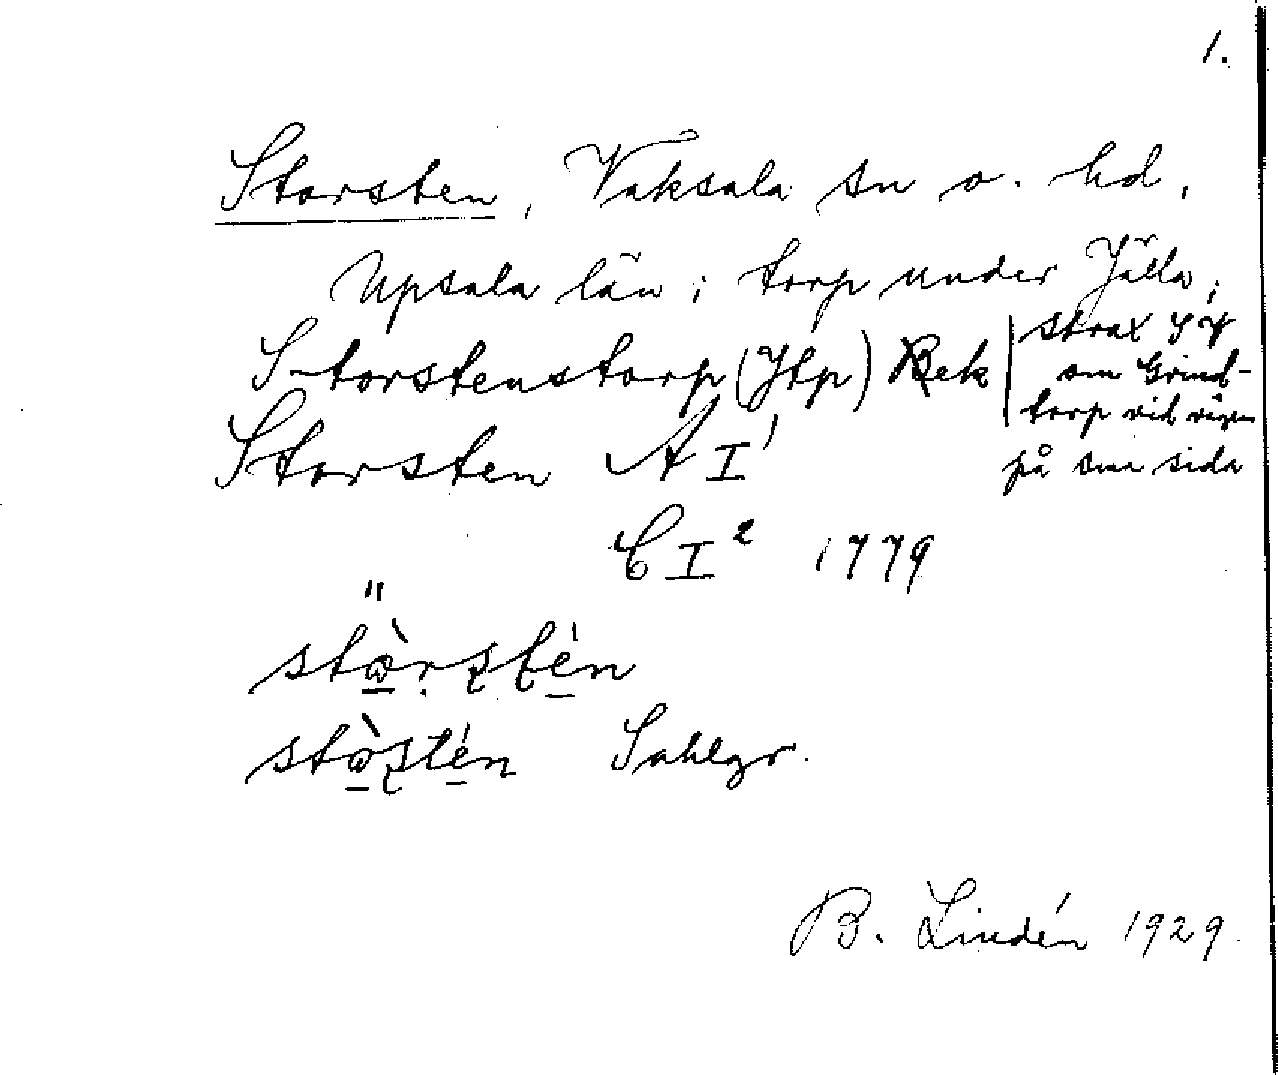 1.
Storsten, Vaksala sn o. hd,
Upsala län; torp under Jälla;
Storstenstorp (Jtp) Rek | strax SV
om Grind-
torp vid vägen
på sma sida
Storsten A I¹
" C I² 1779
stɷ̀rstén
stɷ̀stén Sahlgr.
B. Lindén 1929.